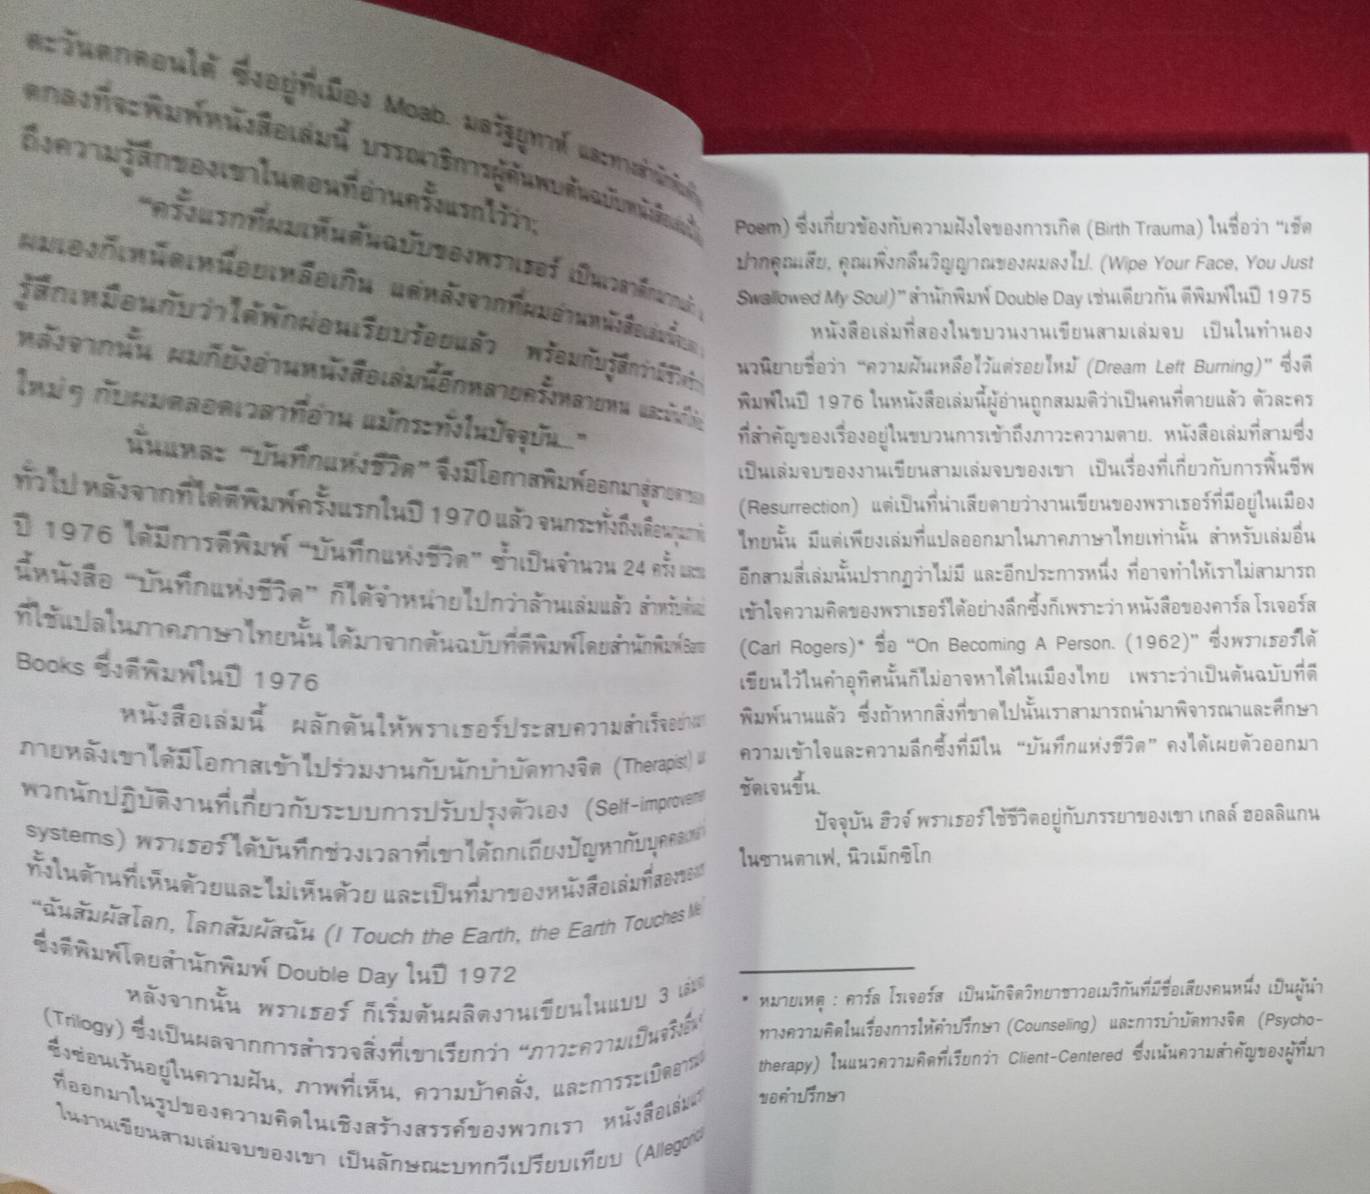 ตะวันตกตอนใต้ ซึ่งอยู่ที่เมือง Moab. มลรัฐยูทาห์ และทางสำนักพิมพ์
ตกลงที่จะพิมพ์หนังสือเล่มนี้ บรรณาธิการผู้ค้นพบต้นฉบับหนังสือเล่มนี้
ถึงความรู้สึกของเขาในตอนที่อ่านครั้งแรกไว้ว่า;
“ครั้งแรกที่ผมเห็นต้นฉบับของพราเธอร์ เป็นเวลาดึกมากแล้ว
ผมเองก็เหน็ดเหนื่อยเหลือเกิน แต่หลังจากที่ผมอ่านหนังสือเล่มนี้
รู้สึกเหมือนกับว่าได้พักผ่อนเรียบร้อยแล้ว พร้อมกับรู้สึกว่ามีชีวิต
หลังจากนั้น ผมก็ยังอ่านหนังสือเล่มนี้อีกหลายครั้งหลายหน และมันก็ให้
ใหม่ๆ กับผมตลอดเวลาที่อ่าน แม้กระทั่งในปัจจุบัน...”
นั่นแหละ “บันทึกแห่งชีวิต” จึงมีโอกาสพิมพ์ออกมาสู่สายตา
ทั่วไป หลังจากที่ได้ตีพิมพ์ครั้งแรกในปี 1970 แล้ว จนกระทั่งถึงเดือน
ปี 1976 ได้มีการตีพิมพ์ “บันทึกแห่งชีวิต” ซ้ำเป็นจำนวน 24 ครั้ง
นี้หนังสือ “บันทึกแห่งชีวิต” ก็ได้จำหน่ายไปกว่าล้านเล่มแล้ว สำหรับ
ที่ใช้แปลในภาคภาษาไทยนั้น ได้มาจากต้นฉบับที่ตีพิมพ์โดยสำนักพิมพ์
Books ซึ่งตีพิมพ์ในปี 1976
หนังสือเล่มนี้ ผลักดันให้พราเธอร์ประสบความสำเร็จ
ภายหลังเขาได้มีโอกาสเข้าไปร่วมงานกับนักบำบัดทางจิต (Therapist)
พวกนักปฏิบัติงานที่เกี่ยวกับระบบการปรับปรุงตัวเอง (Self-improvement
systems) พราเธอร์ ได้บันทึกช่วงเวลาที่เขาได้ถกเถียงปัญหากับบุคคลเหล่า
ทั้งในด้านที่เห็นด้วยและไม่เห็นด้วย และเป็นที่มาของหนังสือเล่มที่สองของ
“ฉันสัมผัสโลก, โลกสัมผัสฉัน (I Touch the Earth, the Earth Touches Me)
ซึ่งตีพิมพ์โดยสำนักพิมพ์ Double Day ในปี 1972
หลังจากนั้น พราเธอร์ ก็เริ่มต้นผลิตงานเขียนในแบบ 3 เล่ม
(Trilogy) ซึ่งเป็นผลจากการสำรวจสิ่งที่เขาเรียกว่า “ภาวะความเป็นจริงอื่นๆ
ซึ่งซ่อนเร้นอยู่ในความฝัน, ภาพที่เห็น, ความบ้าคลั่ง, และการระเบิดอารมณ์
ที่ออกมาในรูปของความคิดในเชิงสร้างสรรค์ของพวกเรา หนังสือเล่มแรก
ในงานเขียนสามเล่มจบของเขา เป็นลักษณะบทกวีเปรียบเทียบ (Allegorical
Poem) ซึ่งเกี่ยวข้องกับความฝังใจของการเกิด (Birth Trauma) ในชื่อว่า “เช็ด
ปากคุณเสีย, คุณเพิ่งกลืนวิญญาณของผมลงไป. (Wipe Your Face, You Just
Swallowed My Soul)” สำนักพิมพ์ Double Day เช่นเดียวกัน ตีพิมพ์ในปี 1975
หนังสือเล่มที่สองในขบวนงานเขียนสามเล่มจบ เป็นในทำนอง
นวนิยายชื่อว่า “ความฝันเหลือไว้แต่รอยไหม้ (Dream Left Burning)” ซึ่งตี
พิมพ์ในปี 1976 ในหนังสือเล่มนี้ผู้อ่านถูกสมมติว่าเป็นคนที่ตายแล้ว ตัวละคร
ที่สำคัญของเรื่องอยู่ในขบวนการเข้าถึงภาวะความตาย. หนังสือเล่มที่สามซึ่ง
เป็นเล่มจบของงานเขียนสามเล่มจบของเขา เป็นเรื่องที่เกี่ยวกับการฟื้นชีพ
(Resurrection) แต่เป็นที่น่าเสียดายว่างานเขียนของพราเธอร์ที่มีอยู่ในเมือง
ไทยนั้น มีแต่เพียงเล่มที่แปลออกมาในภาคภาษาไทยเท่านั้น สำหรับเล่มอื่น
อีกสามสี่เล่มนั้นปรากฏว่าไม่มี และอีกประการหนึ่ง ที่อาจทำให้เราไม่สามารถ
เข้าใจความคิดของพราเธอร์ได้อย่างลึกซึ้งก็เพราะว่า หนังสือของคาร์ล โรเจอร์ส
(Carl Rogers)* ชื่อ “On Becoming A Person. (1962)” ซึ่งพราเธอร์ได้
เขียนไว้ในคำอุทิศนั้นก็ไม่อาจหาได้ในเมืองไทย เพราะว่าเป็นต้นฉบับที่ตี
พิมพ์นานแล้ว ซึ่งถ้าหากสิ่งที่ขาดไปนั้นเราสามารถนำมาพิจารณาและศึกษา
ความเข้าใจและความลึกซึ้งที่มีใน “บันทึกแห่งชีวิต” คงได้เผยตัวออกมา
ชัดเจนขึ้น.
ปัจจุบัน ฮิวจ์ พราเธอร์ ใช้ชีวิตอยู่กับภรรยาของเขา เกลล์ ฮอลลิแกน
ในซานตาเฟ, นิวเม็กซิโก
* หมายเหตุ : คาร์ล โรเจอร์ส เป็นนักจิตวิทยาชาวอเมริกันที่มีชื่อเสียงคนหนึ่ง เป็นผู้นำ
ทางความคิดในเรื่องการให้คำปรึกษา (Counseling) และการบำบัดทางจิต (Psycho-
therapy) ในแนวความคิดที่เรียกว่า Client-Centered ซึ่งเน้นความสำคัญของผู้ที่มา
ขอคำปรึกษา